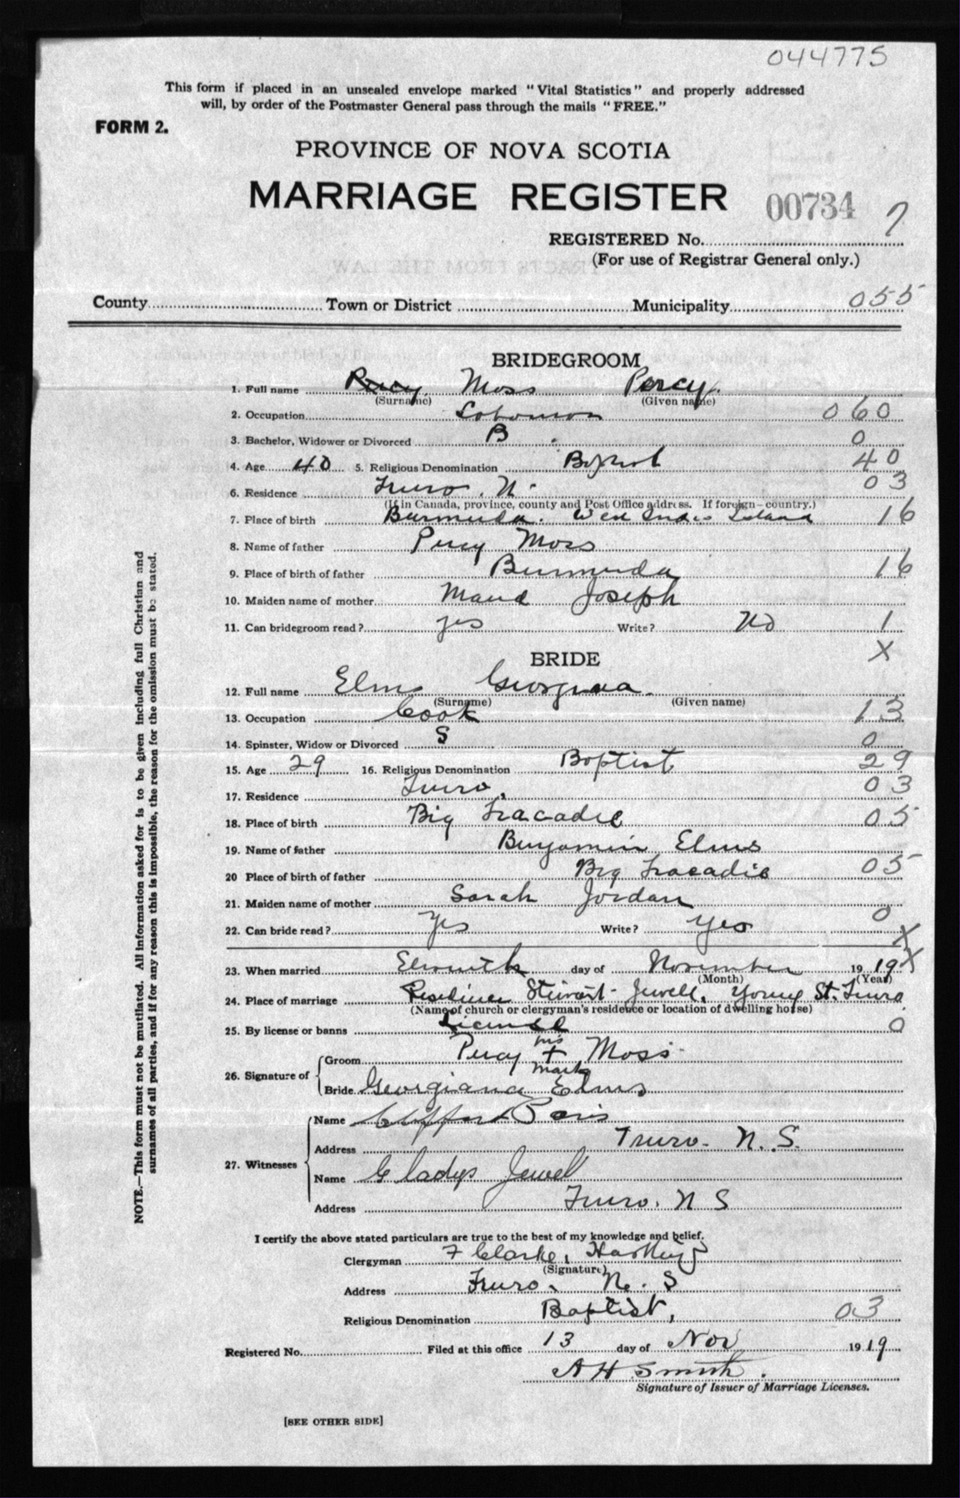 044775
This form if placed in an unsealed envelope marked "Vital Statistics" and properly addressed
will, by order of the Postmaster General pass through the mails "FREE."
FORM 2.
PROVINCE OF NOVA SCOTIA
MARRIAGE REGISTER 00734
REGISTERED No. 7
(For use of Registrar General only.)
County Town or District Municipality 055
BRIDEGROOM
1. Full name Percy Moss Percy
(Surname) (Given name)
2. Occupation 060
3. Bachelor, Widower or Divorced B. 0
4. Age 40 5. Religious Denomination Baptist 40
6. Residence Truro. N. 03
(If in Canada, province, county and Post Office address. If foreign—country.)
7. Place of birth Burmuda. West Indies Island 16
8. Name of father Percy Moss
9. Place of birth of father Burmuda 16
10. Maiden name of mother Maud Joseph
11. Can bridegroom read? yes Write? No 1
X
BRIDE
12. Full name Elms Georgina
(Surname) (Given name)
13. Occupation Cook 13
14. Spinster, Widow or Divorced S 0
15. Age 29 16. Religious Denomination Baptist 29
17. Residence Truro. 03
18. Place of birth Big Tracadie 05
19. Name of father Benjamin Elms
20 Place of birth of father Big Tracadie 05
21. Maiden name of mother Sarah Jordan
22. Can bride read? Yes Write? Yes 0
X
23. When married Eleventh day of November 1919 X
(Month) (Year)
24. Place of marriage Residence Stewart Jewell, Young St. Truro
(Name of church or clergyman's residence or location of dwelling house)
25. By license or banns License 0
26. Signature of Groom Percy his + mark Moss
Bride Georgiana Elms
27. Witnesses
Name Clifford Paris
Address Truro. N. S.
Name Gladys Jewel
Address Truro. N S
I certify the above stated particulars are true to the best of my knowledge and belief.
Clergyman F Clarke, Hartley
(Signature)
Address Truro. N. S
Religious Denomination Baptist, 03
Registered No. Filed at this office 13 day of Nov 1919
A H Smith.
Signature of Issuer of Marriage Licenses.
[SEE OTHER SIDE]
NOTE.—This form must not be mutilated. All information asked for is to be given including full Christian and
surnames of all parties, and if for any reason this is impossible, the reason for the omission must be stated.